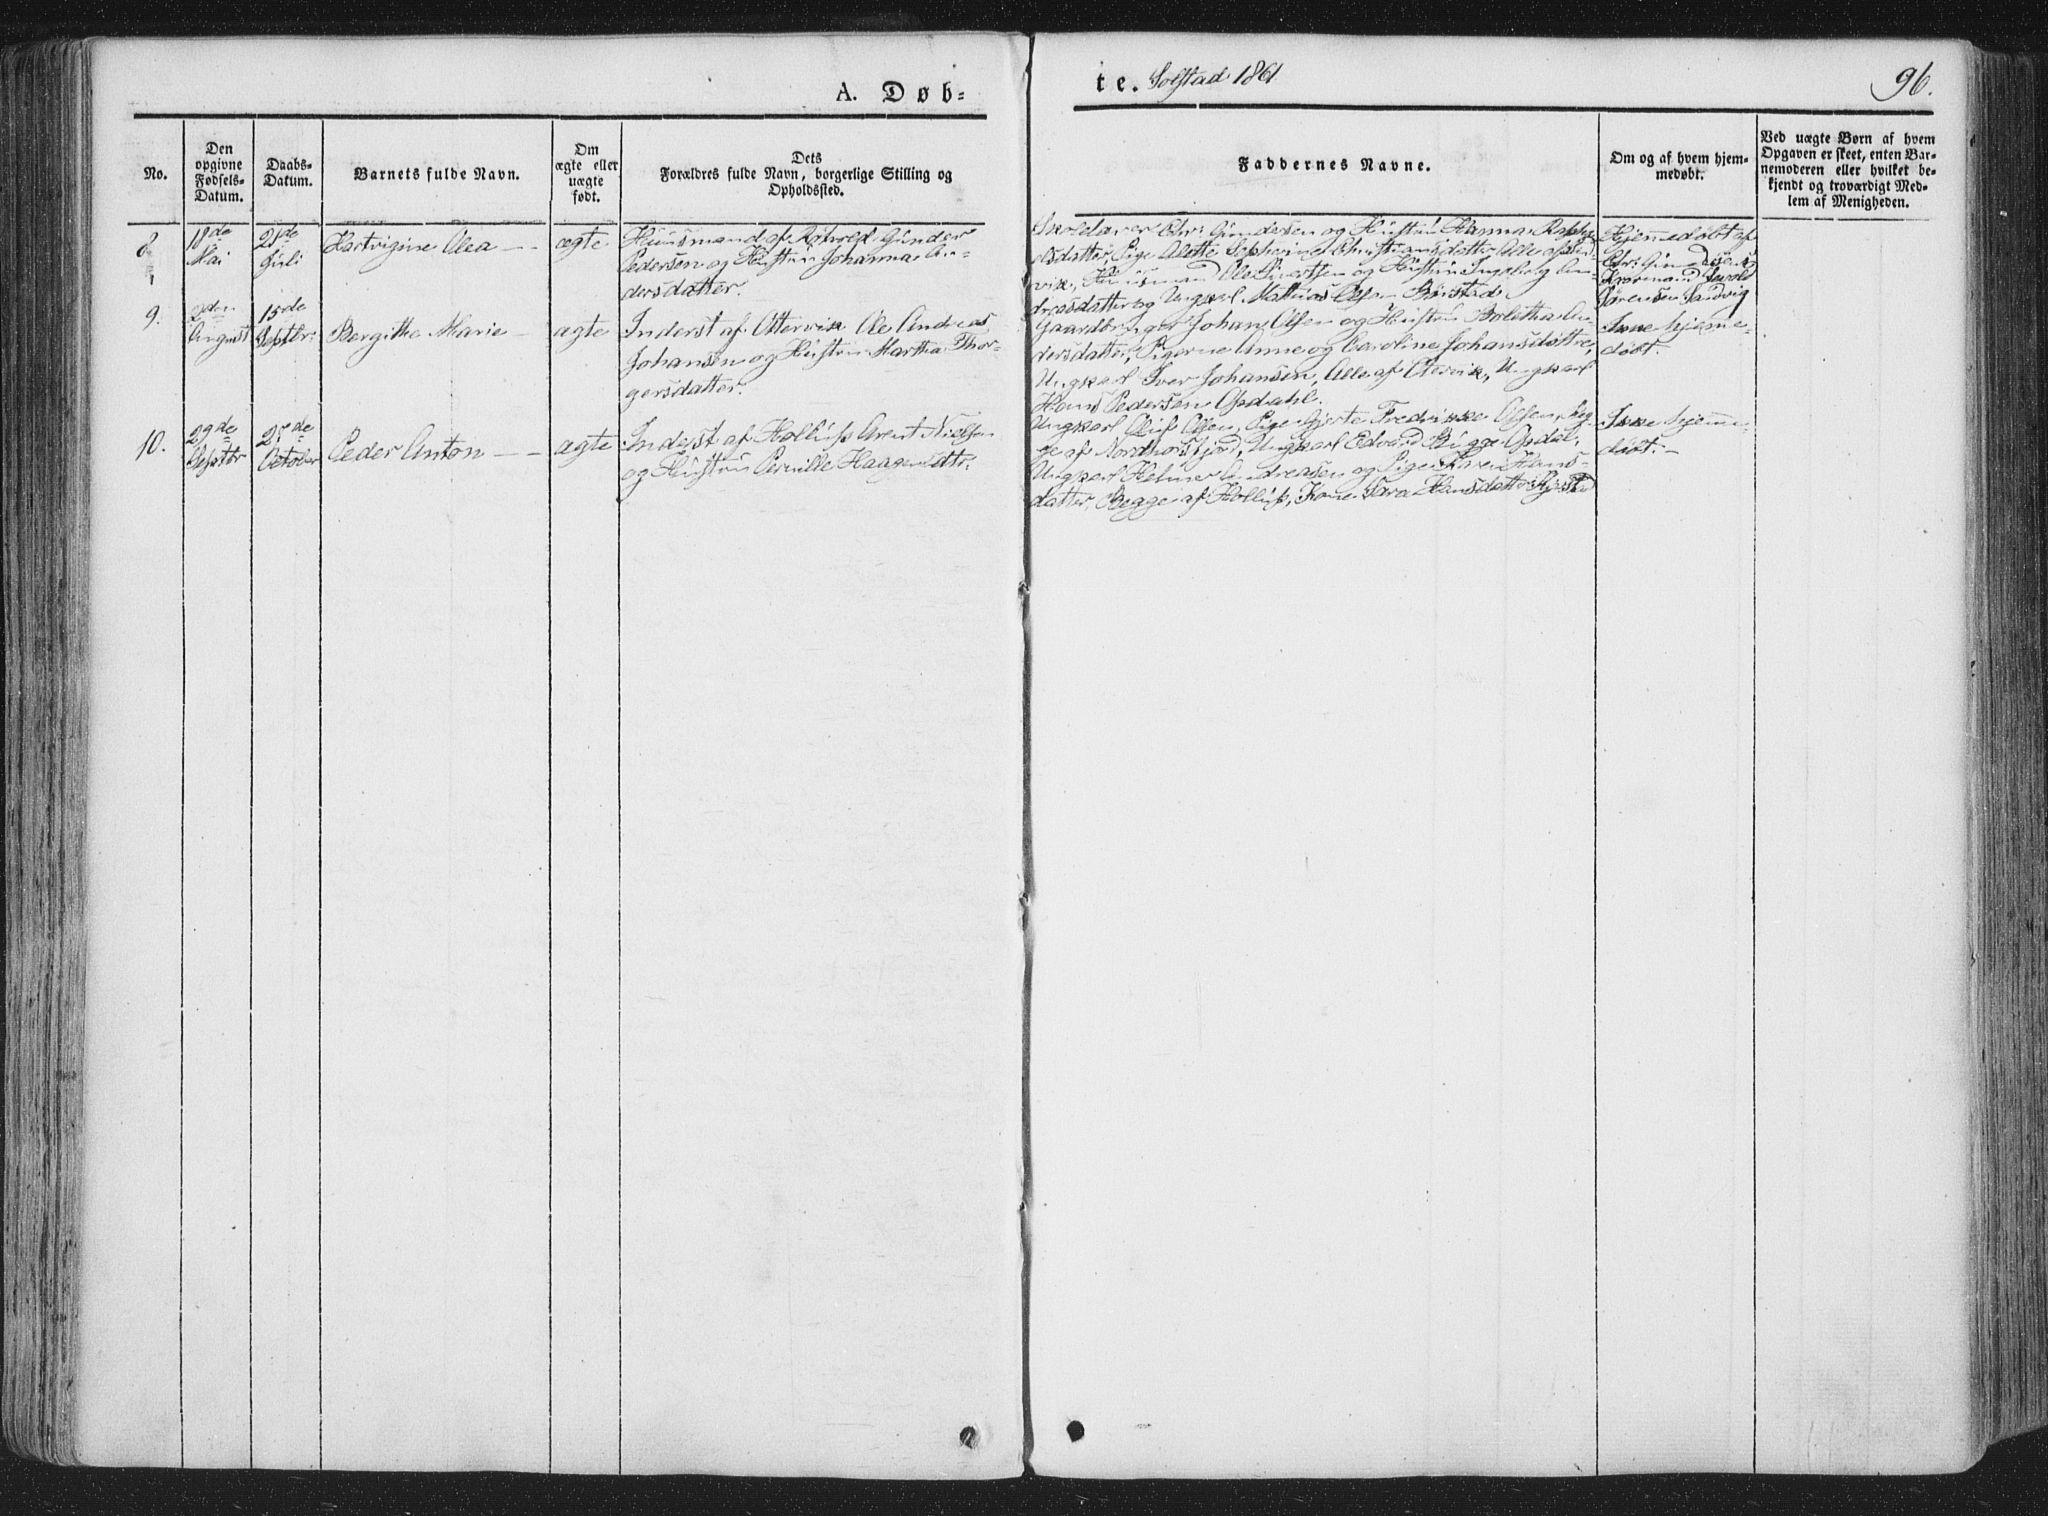 A. Døb-
te. Solstad 1861
96.
No.
Den opgivne Fødsels-Datum.
Daabs-Datum.
Barnets fulde Navn.
Om ægte eller uægte født.
Dets Forældres fulde Navn, borgerlige Stilling og Opholdssted.
Faddernes Navne.
Om og af hvem hjem-medøbt.
Ved uægte Børn af hvem Opgaven er skeet, enten Bar-nemoderen eller hvilket be-kjendt og troværdigt Med-lem af Menigheden.
8.
18de Mai
21de Juli
Hartvigine Olea
ægte
Huusmand af Gunder
Pedersen og Hustru Johanna An-
dersdatter.
Chr: Gundersen og Hustru Hanna
datter, Pige Alette Sepherine Christiansdatter Alle af Sand-
vik, Huusmand Ole Sivertsen og Hustru Ingeborg An-
dreasdatter og Ungkarl Mathias Olsen
Hjemmedøbt af
Chr: Gundersen
Sørensen Sandvig
9.
2den August
15de Septbr:
Bergithe Marie
ægte
Inderst af Ottervik Ole Andreas
Johansen og Hustru Martha Thor-
gersdatter.
Gaardbruger Johan Olsen og Hustru Boletha An-
dersdatter, Pigerne Anne og Caroline Johansdøttre,
Ungkarl Iver Johansen, Alle af Ottervik, Ungkarl
Hans Pedersen Opdahl.
Ikke hjemme-
døbt.
10.
29de Septbr
27de October
Peder Anton
ægte
Inderst af Hollup Arent Nielsen
og Hustru Pernille Haagensdtr.
Ungkarl Oluf Olsen, Pige Gjerte Fredrikke Olsen, Beg-
ge af Nordhorsfjord, Ungkarl Edvard Bugge Opdal,
Ungkarl Helmer Andreasen og Pige Karen Hans-
datter, Begge af Hollup, Kone Sara Hansdatter
Ikke hjemme-
døbt.